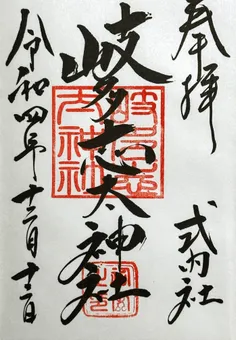 奉拝
式内社
岐多志太神社
令和四年十二月十二日